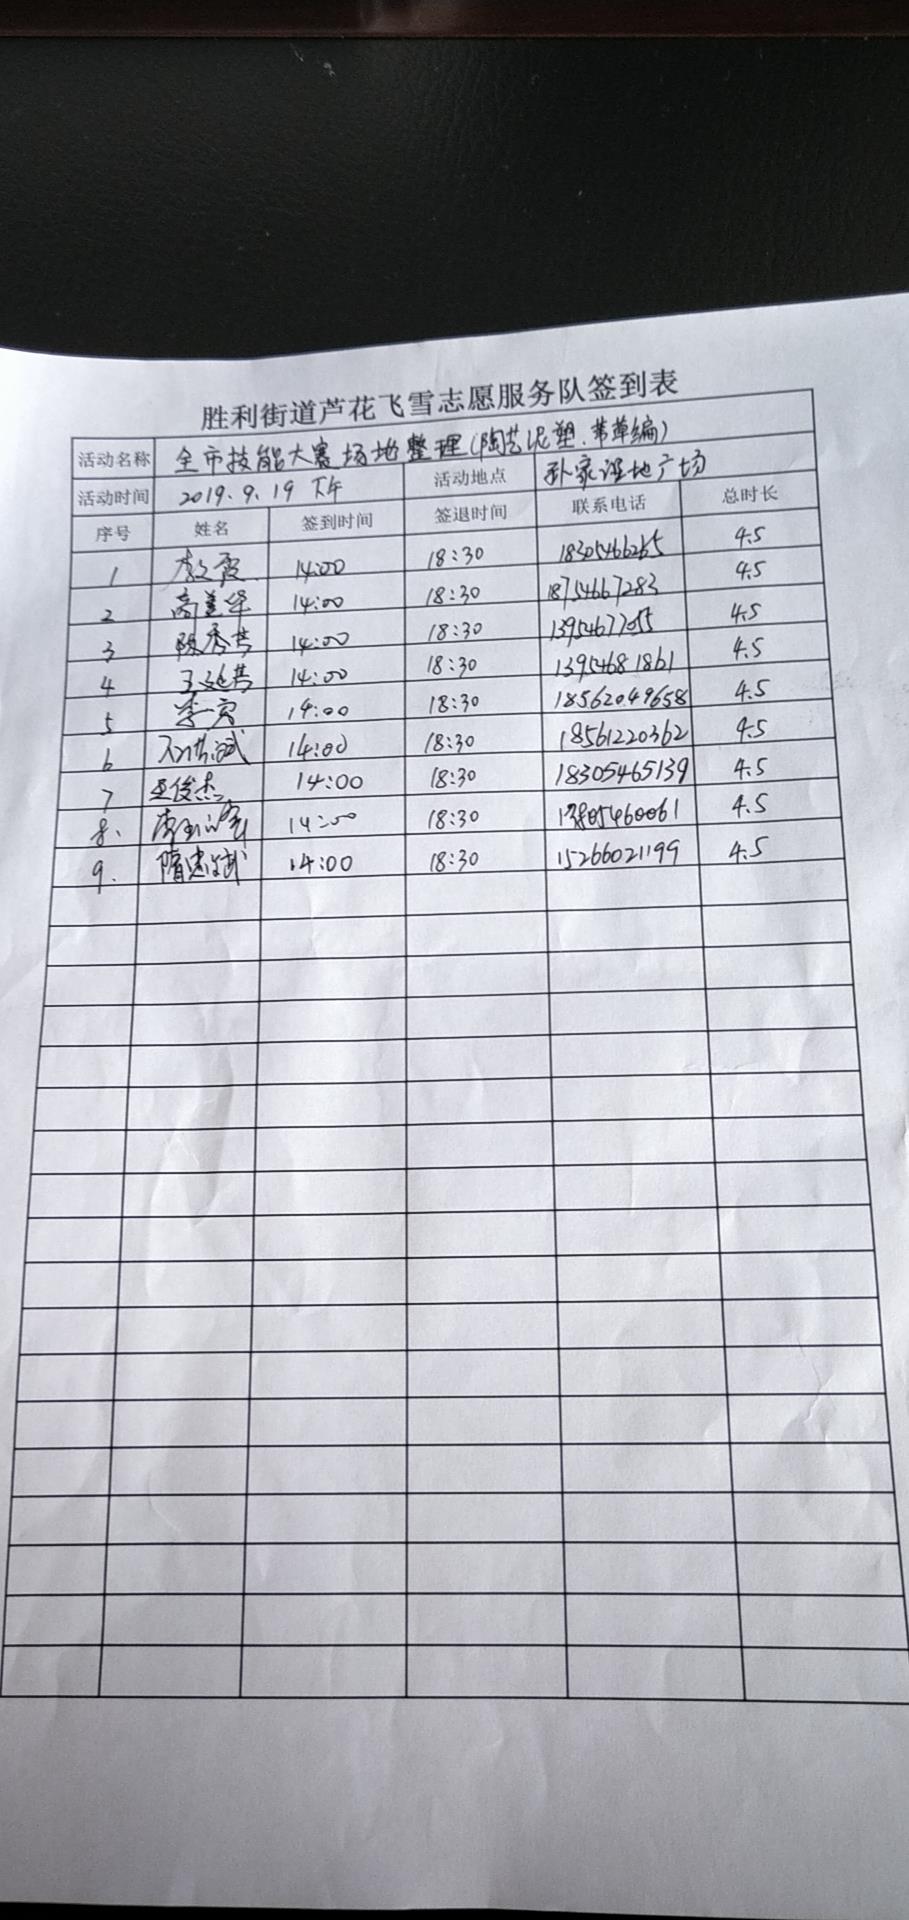 胜利街道芦花飞雪志愿服务队签到表
活动名称 全市技能大赛场地整理(陶艺泥塑、苇草编)
活动时间 2019.9.19 下午 活动地点 孙家湿地广场
序号 姓名 签到时间 签退时间 联系电话 总时长
1 14:00 18:30 18305466265 4.5
2 高美华 14:00 18:30 18754667283 4.5
3 陈秀芸 14:00 18:30 4.5
4 王延芸 14:00 18:30 13954681861 4.5
5 14:00 18:30 18562049658 4.5
6 14:00 18:30 18561220362 4.5
7 王俊杰 14:00 18:30 18305465139 4.5
8. 14:00 18:30 4.5
9. 14:00 18:30 15266021199 4.5